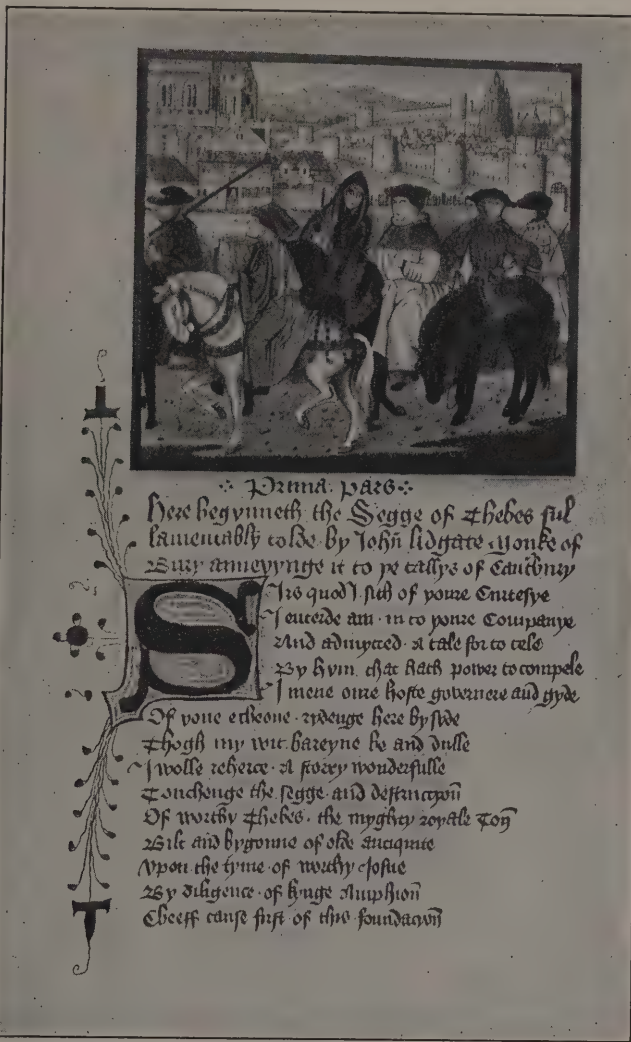 Prima: pars
Here begynneth the Segge of Thebes ful
lamentably tolde by John lidgate Monke of
Bury anneyynge it to þe tallys of Cauntbury
Sirs quod I sith of youre Curtesye
I entrede am in to youre Companye
And admytted a tale for to tele
By hym that hath power to compele
I mene oure hoste governere and gyde
Of youe echeone rydenge here bysyde
Thogh my wit bareyne be and dulle
I wolle reherce a story wonderfulle
Touchenge the segge and destruccyon
Of worthy Thebes the myghty royale Ton
Bilt and bygonne of olde antiquite
Vpon the tyme of worthy Josue
By diligence of kynge Amphion
Cheeff cause first of this foundacion